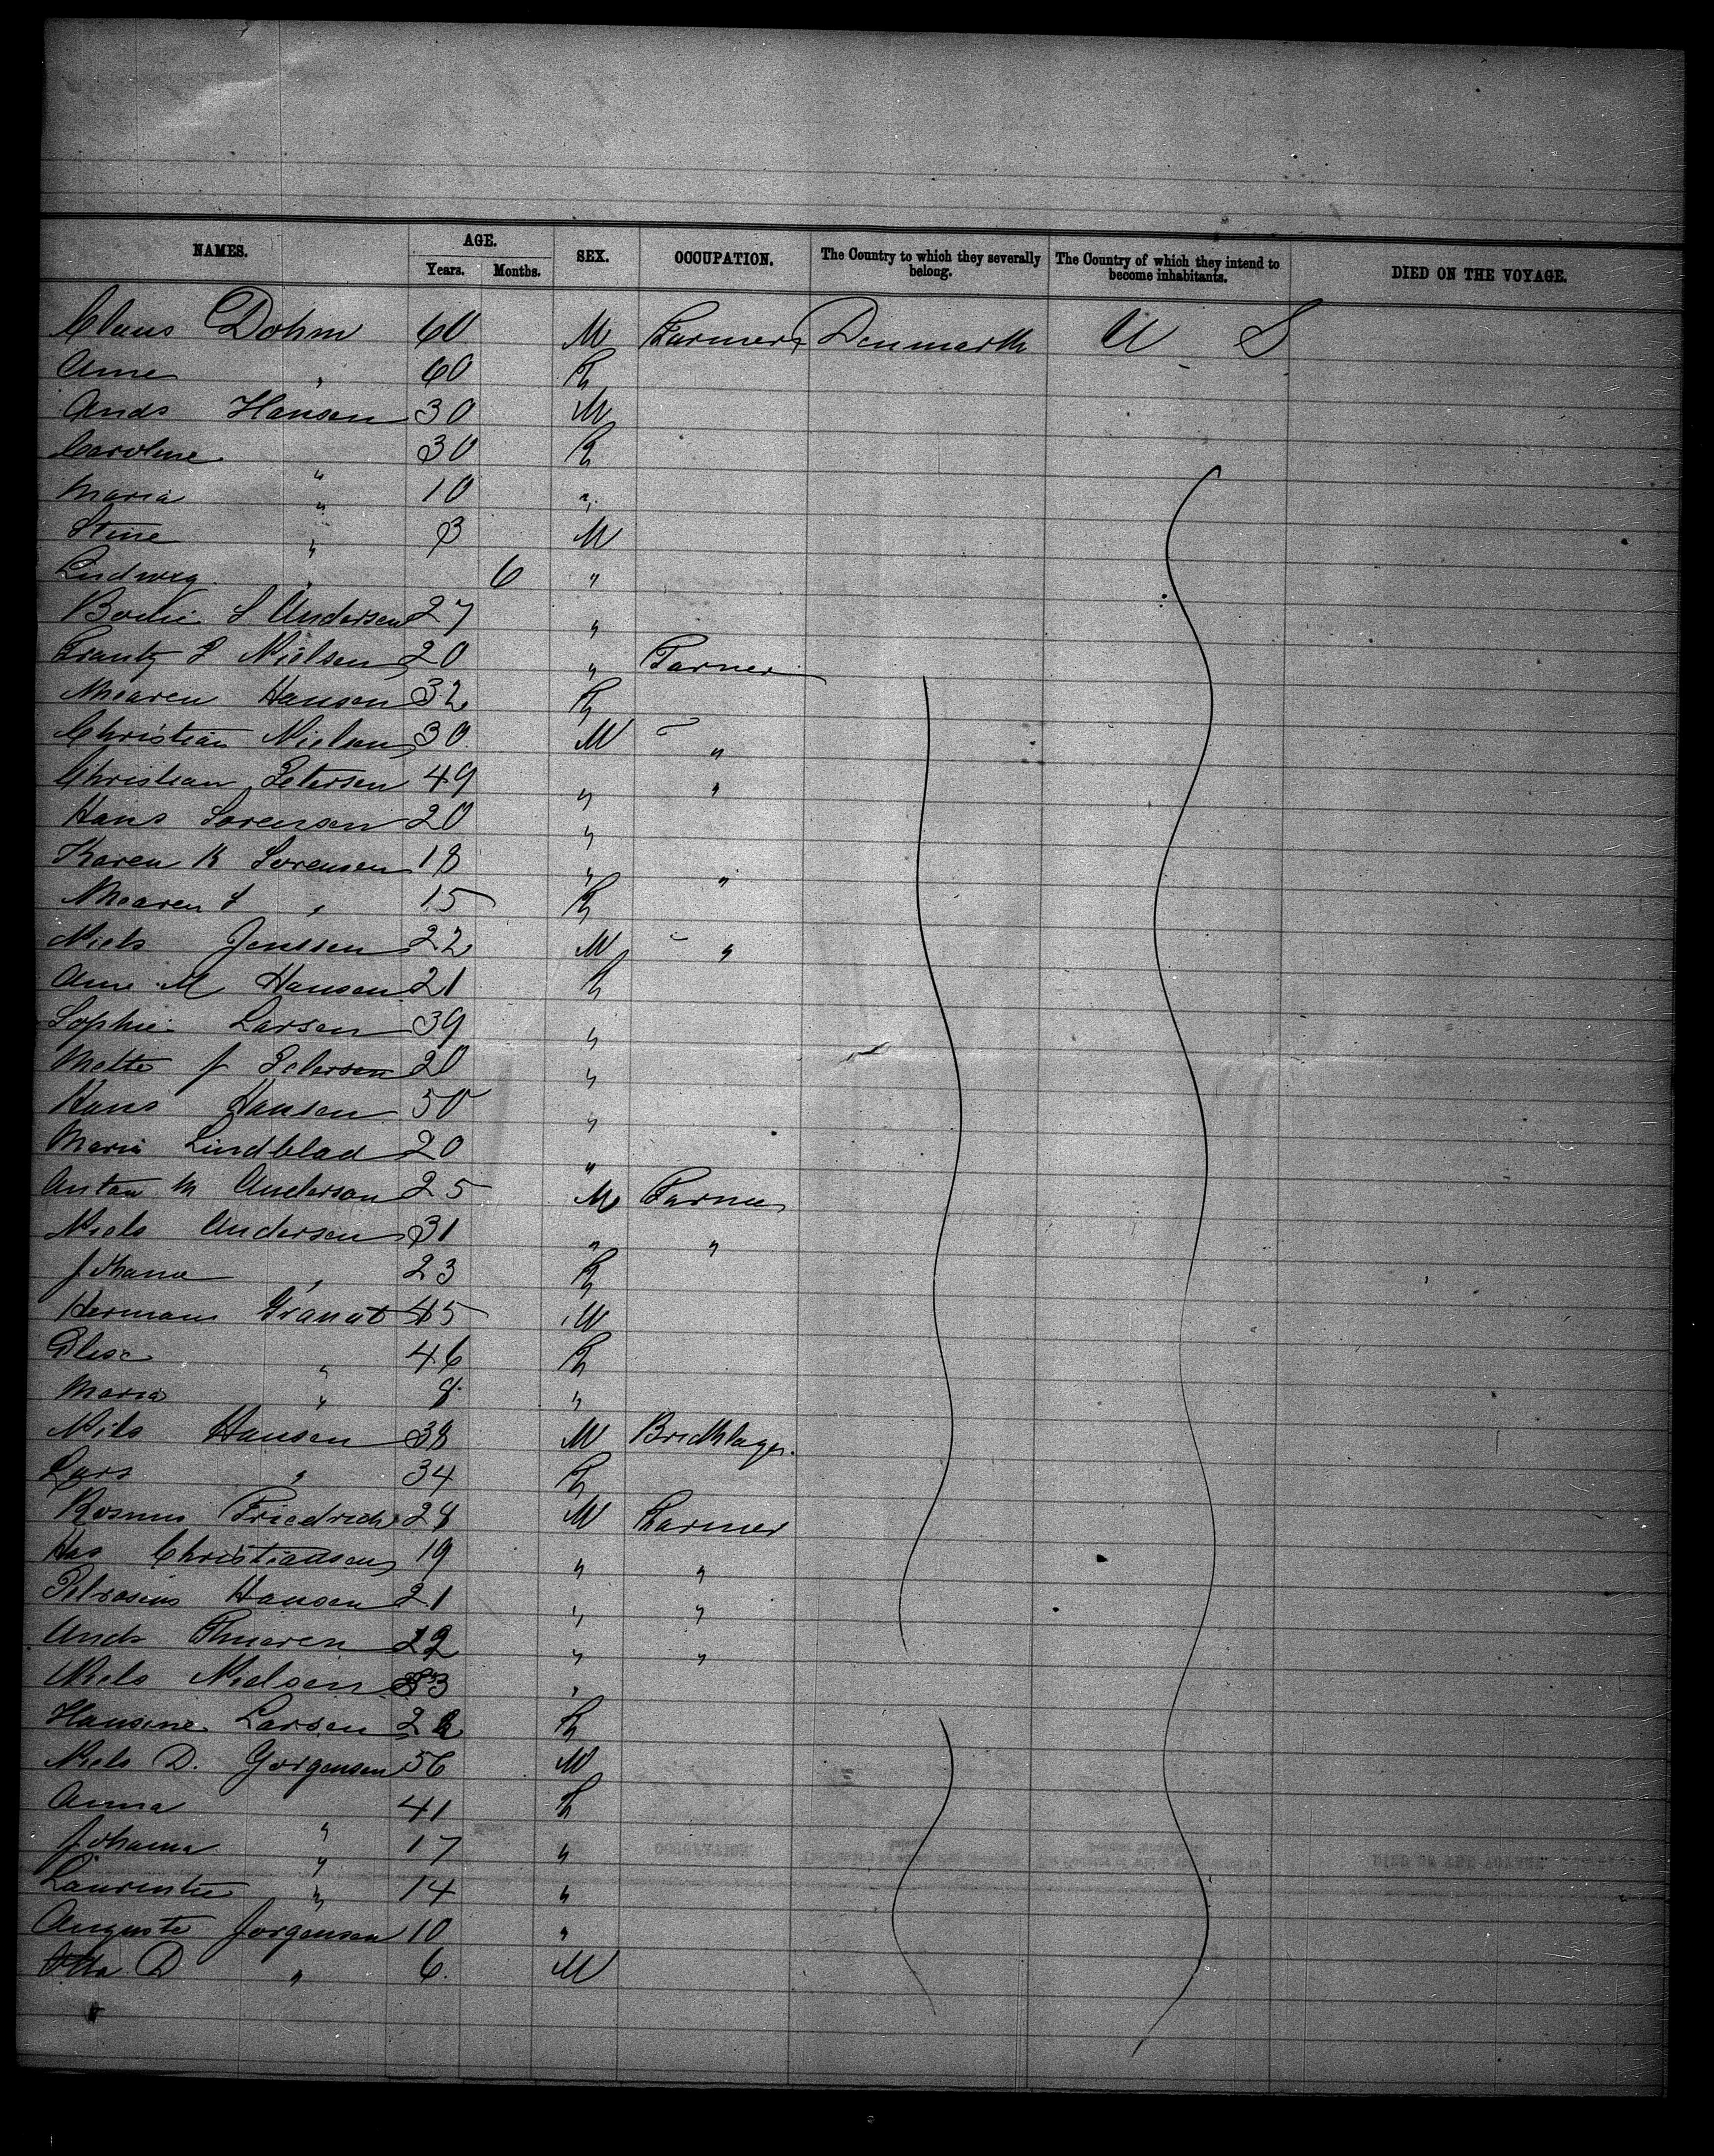 NAMES. AGE. Years. Months. SEX. OCCUPATION. The Country to which they severally belong. The Country of which they intend to become inhabitants. DIED ON THE VOYAGE.
Claus Dohm 60 M Farmer Denmark U S
Ane " 60 F
Ands Hansen 30 M
Caroline " 30 F
Maria " 10 "
Stine " 3 M
Ludwig " 6 "
Bodie S Andersen 27 "
Frantz P Nielsen 20 " Farmer
Maaren Hansen 32 F
Christian Nielsen 30 M "
Christian Petersen 49 " "
Hans Sorensen 20 "
Karen K Sorensen 18 " "
Maaren S " 15 F
Niels Jenssen 22 M "
Ane M Hansen 21 F
Sophie Larsen 39 "
Mette J Petersen 20 "
Hans Hansen 50 "
Maria Lindblad 20 "
Anton M Anderson 25 M Farmer
Niels Andersen 31 " "
Johana " 23 F
Hermann Granat 45 M
Elise " 46 F
Maria " 8 "
Nils Hansen 38 M Bricklayer.
Lars " 34 F
Rasmus Friedrich 28 M Farmer
Has Christiansen 19 " "
Petrosius Hansen 21 " "
Ands Thuaren 22 " "
Niels Nielsen 33 "
Hansine Larsen 22 F
Niels D. Jorgensen 56 M
Anna " 41 F
Johanna " 17 "
Laurentie " 14 "
Auguste Jorgensen 10 "
Otto D " 6 M